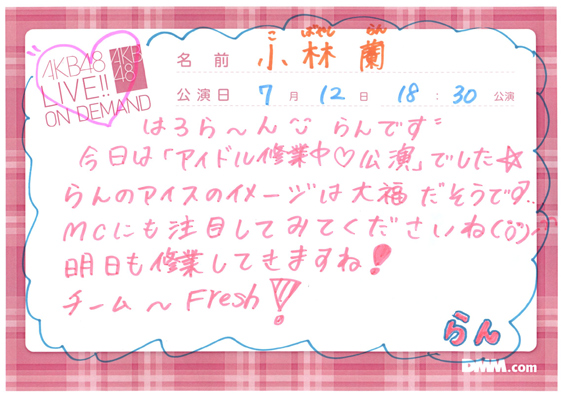 AKB48
LIVE!!
ON DEMAND
AKB
48
こ ばやし らん
名前 小林 蘭
公演日 7月 12日 18:30 公演
はろら〜ん らんです
今日は「アイドル修業中♡公演」でした☆
らんのアイスのイメージは大福だそうです
MCにも注目してみてくださいね
明日も修業してきますね!
チーム〜Fresh!!
らん
DMM.com